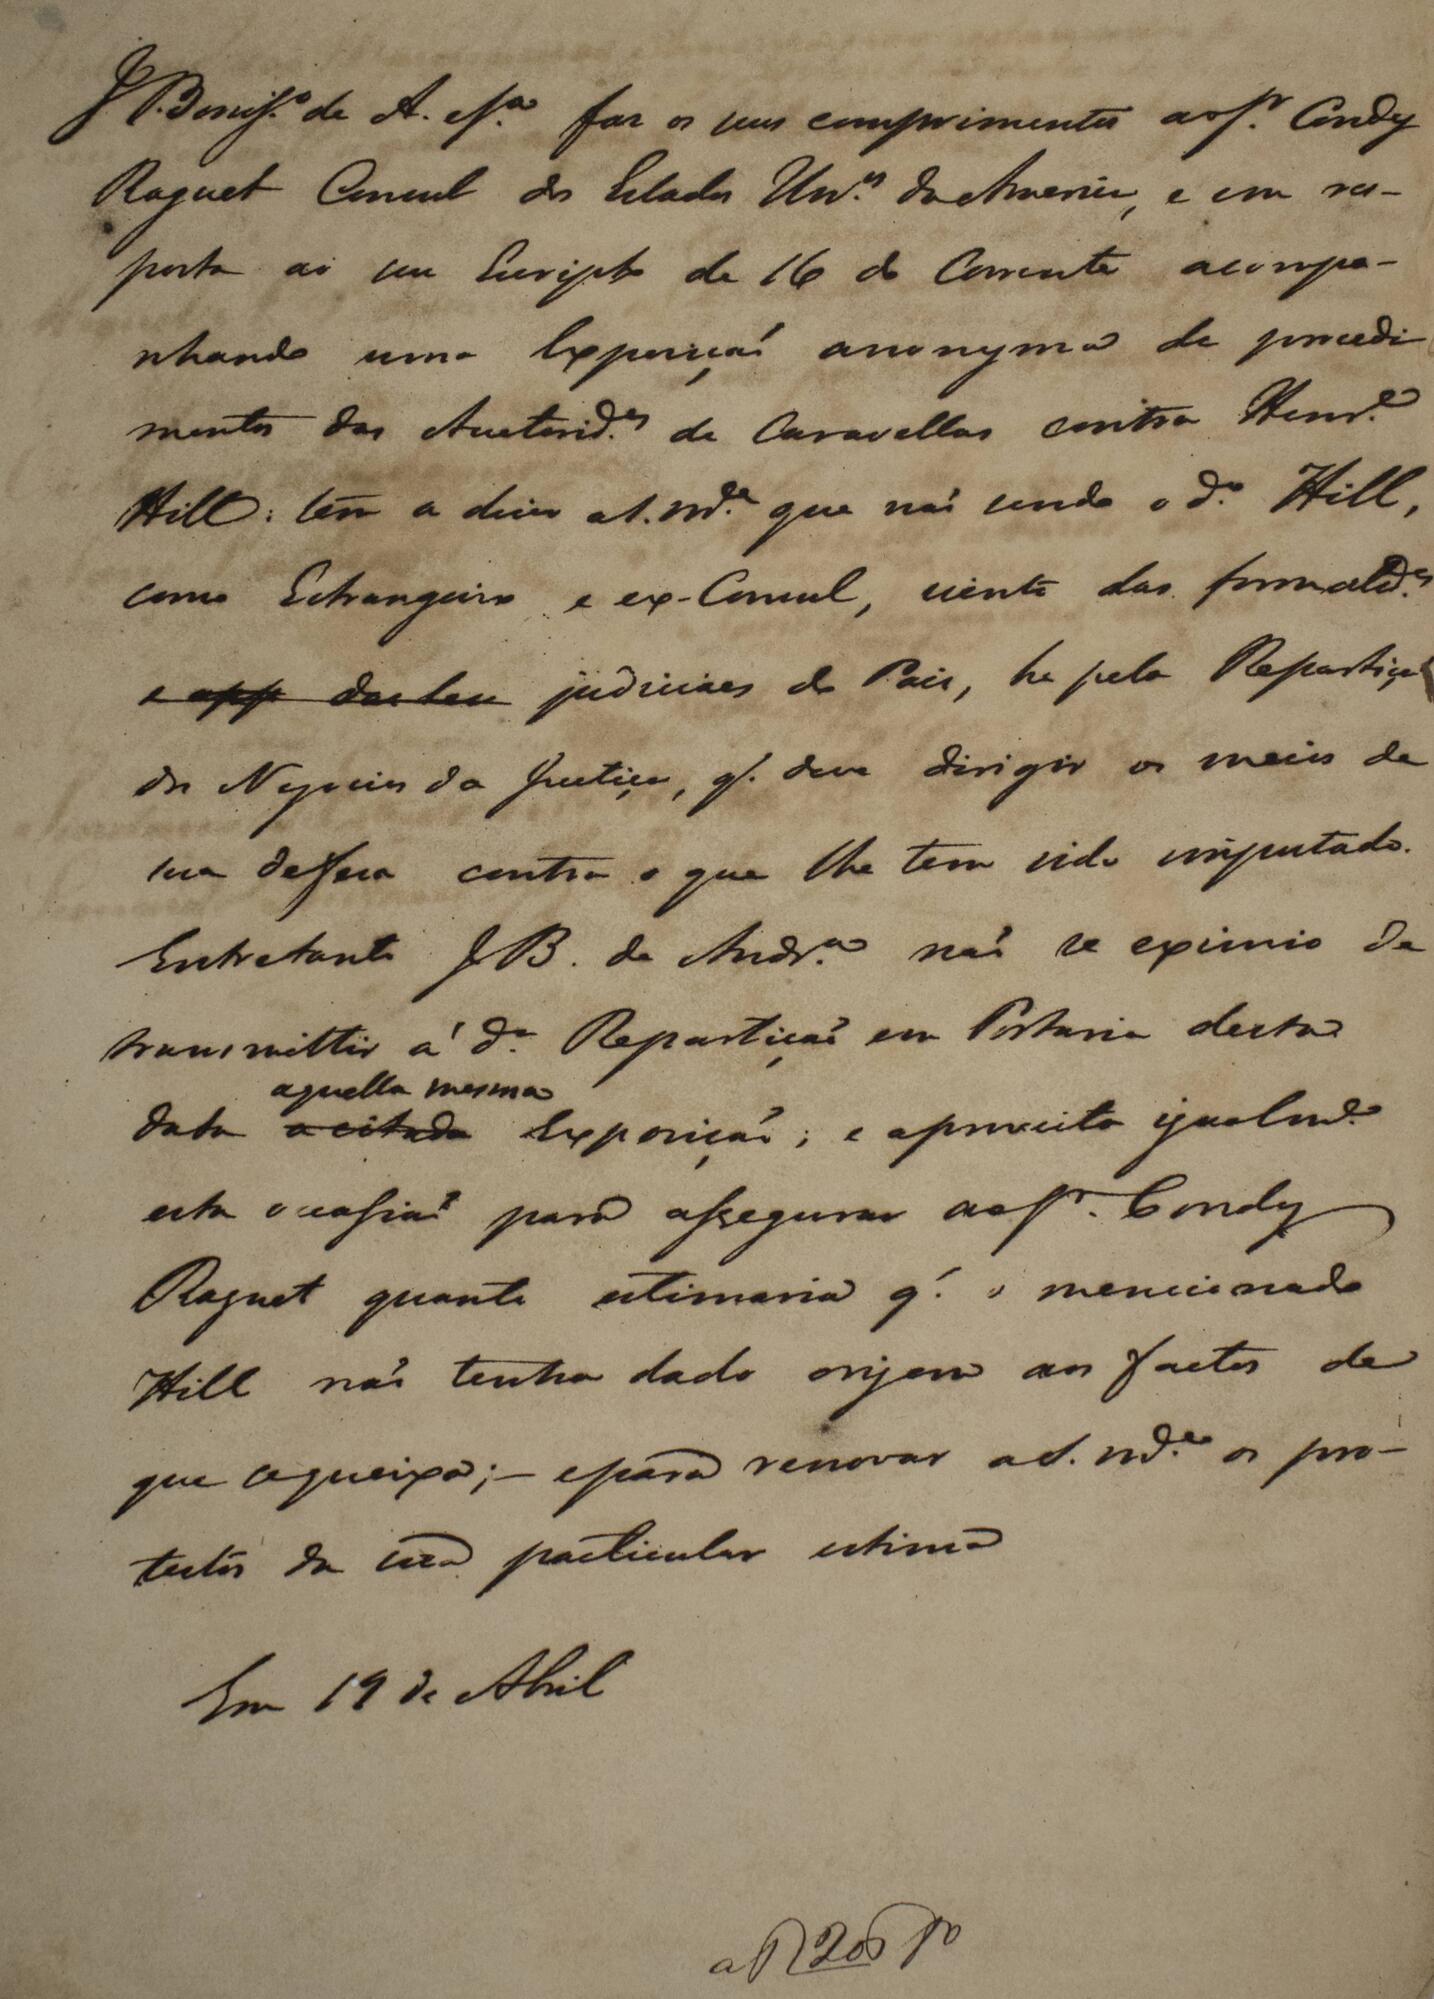 J. Bonif.º de A. e S.ª faz os seus comprimentos ao Sr. Condy
Raguet Consul dos Estados Un.ᵒˢ da America, e em res-
posta ao seu Escripto de 16 do Corrente acompa-
nhando uma Exposiçaõ anonyma de procedi-
mentos das Auctorid.ᵉˢ de Caravellas contra Henr.ᵉ
Hill: tem a dizer a S. M.ᶜᵉ que naõ sendo o d.º Hill,
como Estrangeiro e ex-Consul, isento das formalid.ᵉˢ
e app das leis judiciaes do Paiz, he pela Repartiçaõ
dos Negocios da Justiça, q. deve dirigir os meios de
sua defesa contra o que lhe tem sido imputado.
Entretanto J B. de Andr.ª naõ se eximio de
transmittir á d.ª Repartiçaõ em Portaria desta
aquella mesma
data a citada Exposiçaõ; e aproveita igualm.ᵉ
esta occasiaõ para assegurar ao Sr. Condy
Raguet quanto estimaria q. o mencionado
Hill naõ tenha dado origem aos factos de
que se queixa; — e para renovar a S. M.ᶜᵉ os pro-
testos da sua particular estima
Em 19 de Abril